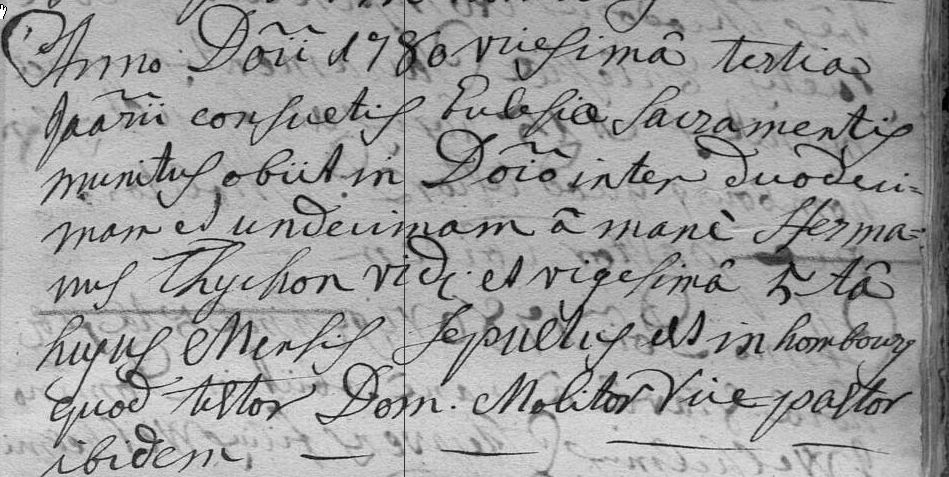 Anno Dōīi 1780 vicesimâ tertia
Jāārii consuetis Eclesiæ Sacramentis
munitus obiit in Dōīō inter duodeci=
mam et undecimam â manè Herma=
nus Thychon vid: et vigesimâ 5tâ
hujus Mensis Sepultus est in hombourg
quod testor Dom. Molitor Vice pastor
ibidem